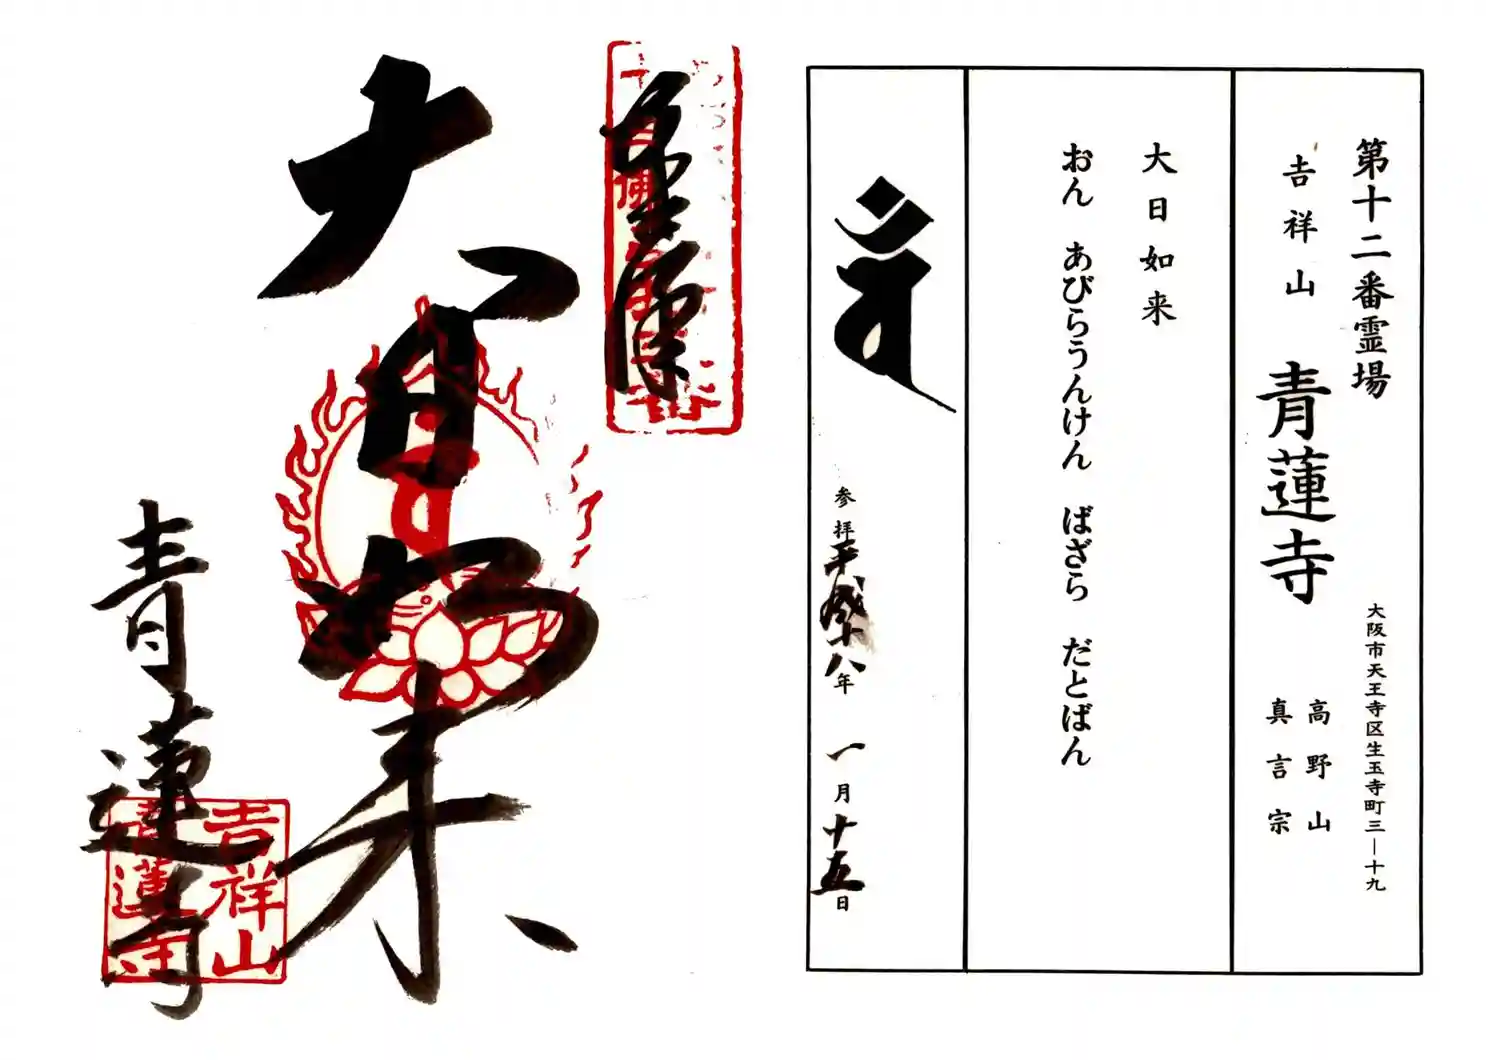 第十二番霊場
吉祥山 青蓮寺
大阪市天王寺区生玉寺町三―十九
高野山
真言宗
大日如来
おん あびらうんけん ばざら だとばん
参拝平成十八年 一月十五日
大日如来
青蓮寺
吉祥山
青蓮寺